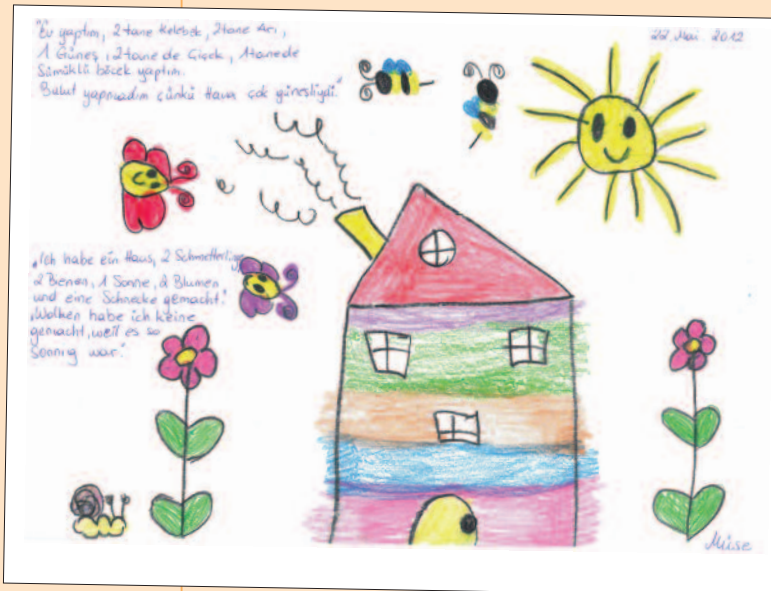 "Ev yaptım, 2 tane Kelebek, 2 tane Arı,
1 Güneş, 2 tane de Çiçek, 1 tane de
Sümüklü böcek yaptım.
Bulut yapmadım çünkü Hava çok güneşliydi."
22. Mai. 2012
"Ich habe ein Haus, 2 Schmetterlinge
2 Bienen, 1 Sonne, 2 Blumen
und eine Schnecke gemacht."
"Wolken habe ich keine
gemacht, weil es so
sonnig war."